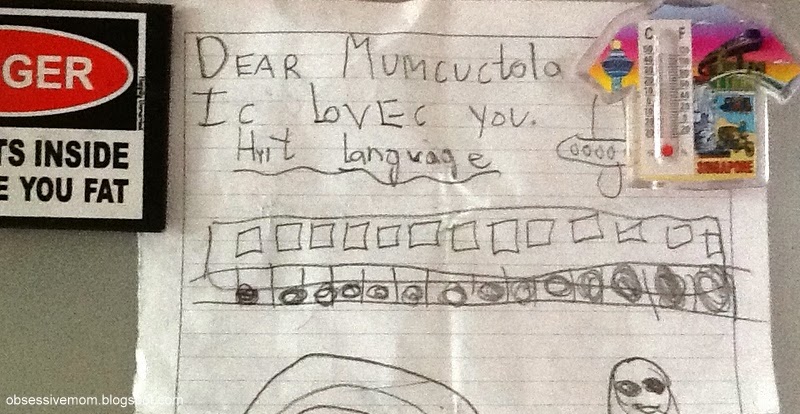 GER
TS INSIDE
E YOU FAT
DEAR Mumcuctola
Ic lovEc you.
Hrit language
C F
SINGAPORE
obsessivemom.blogspot.com